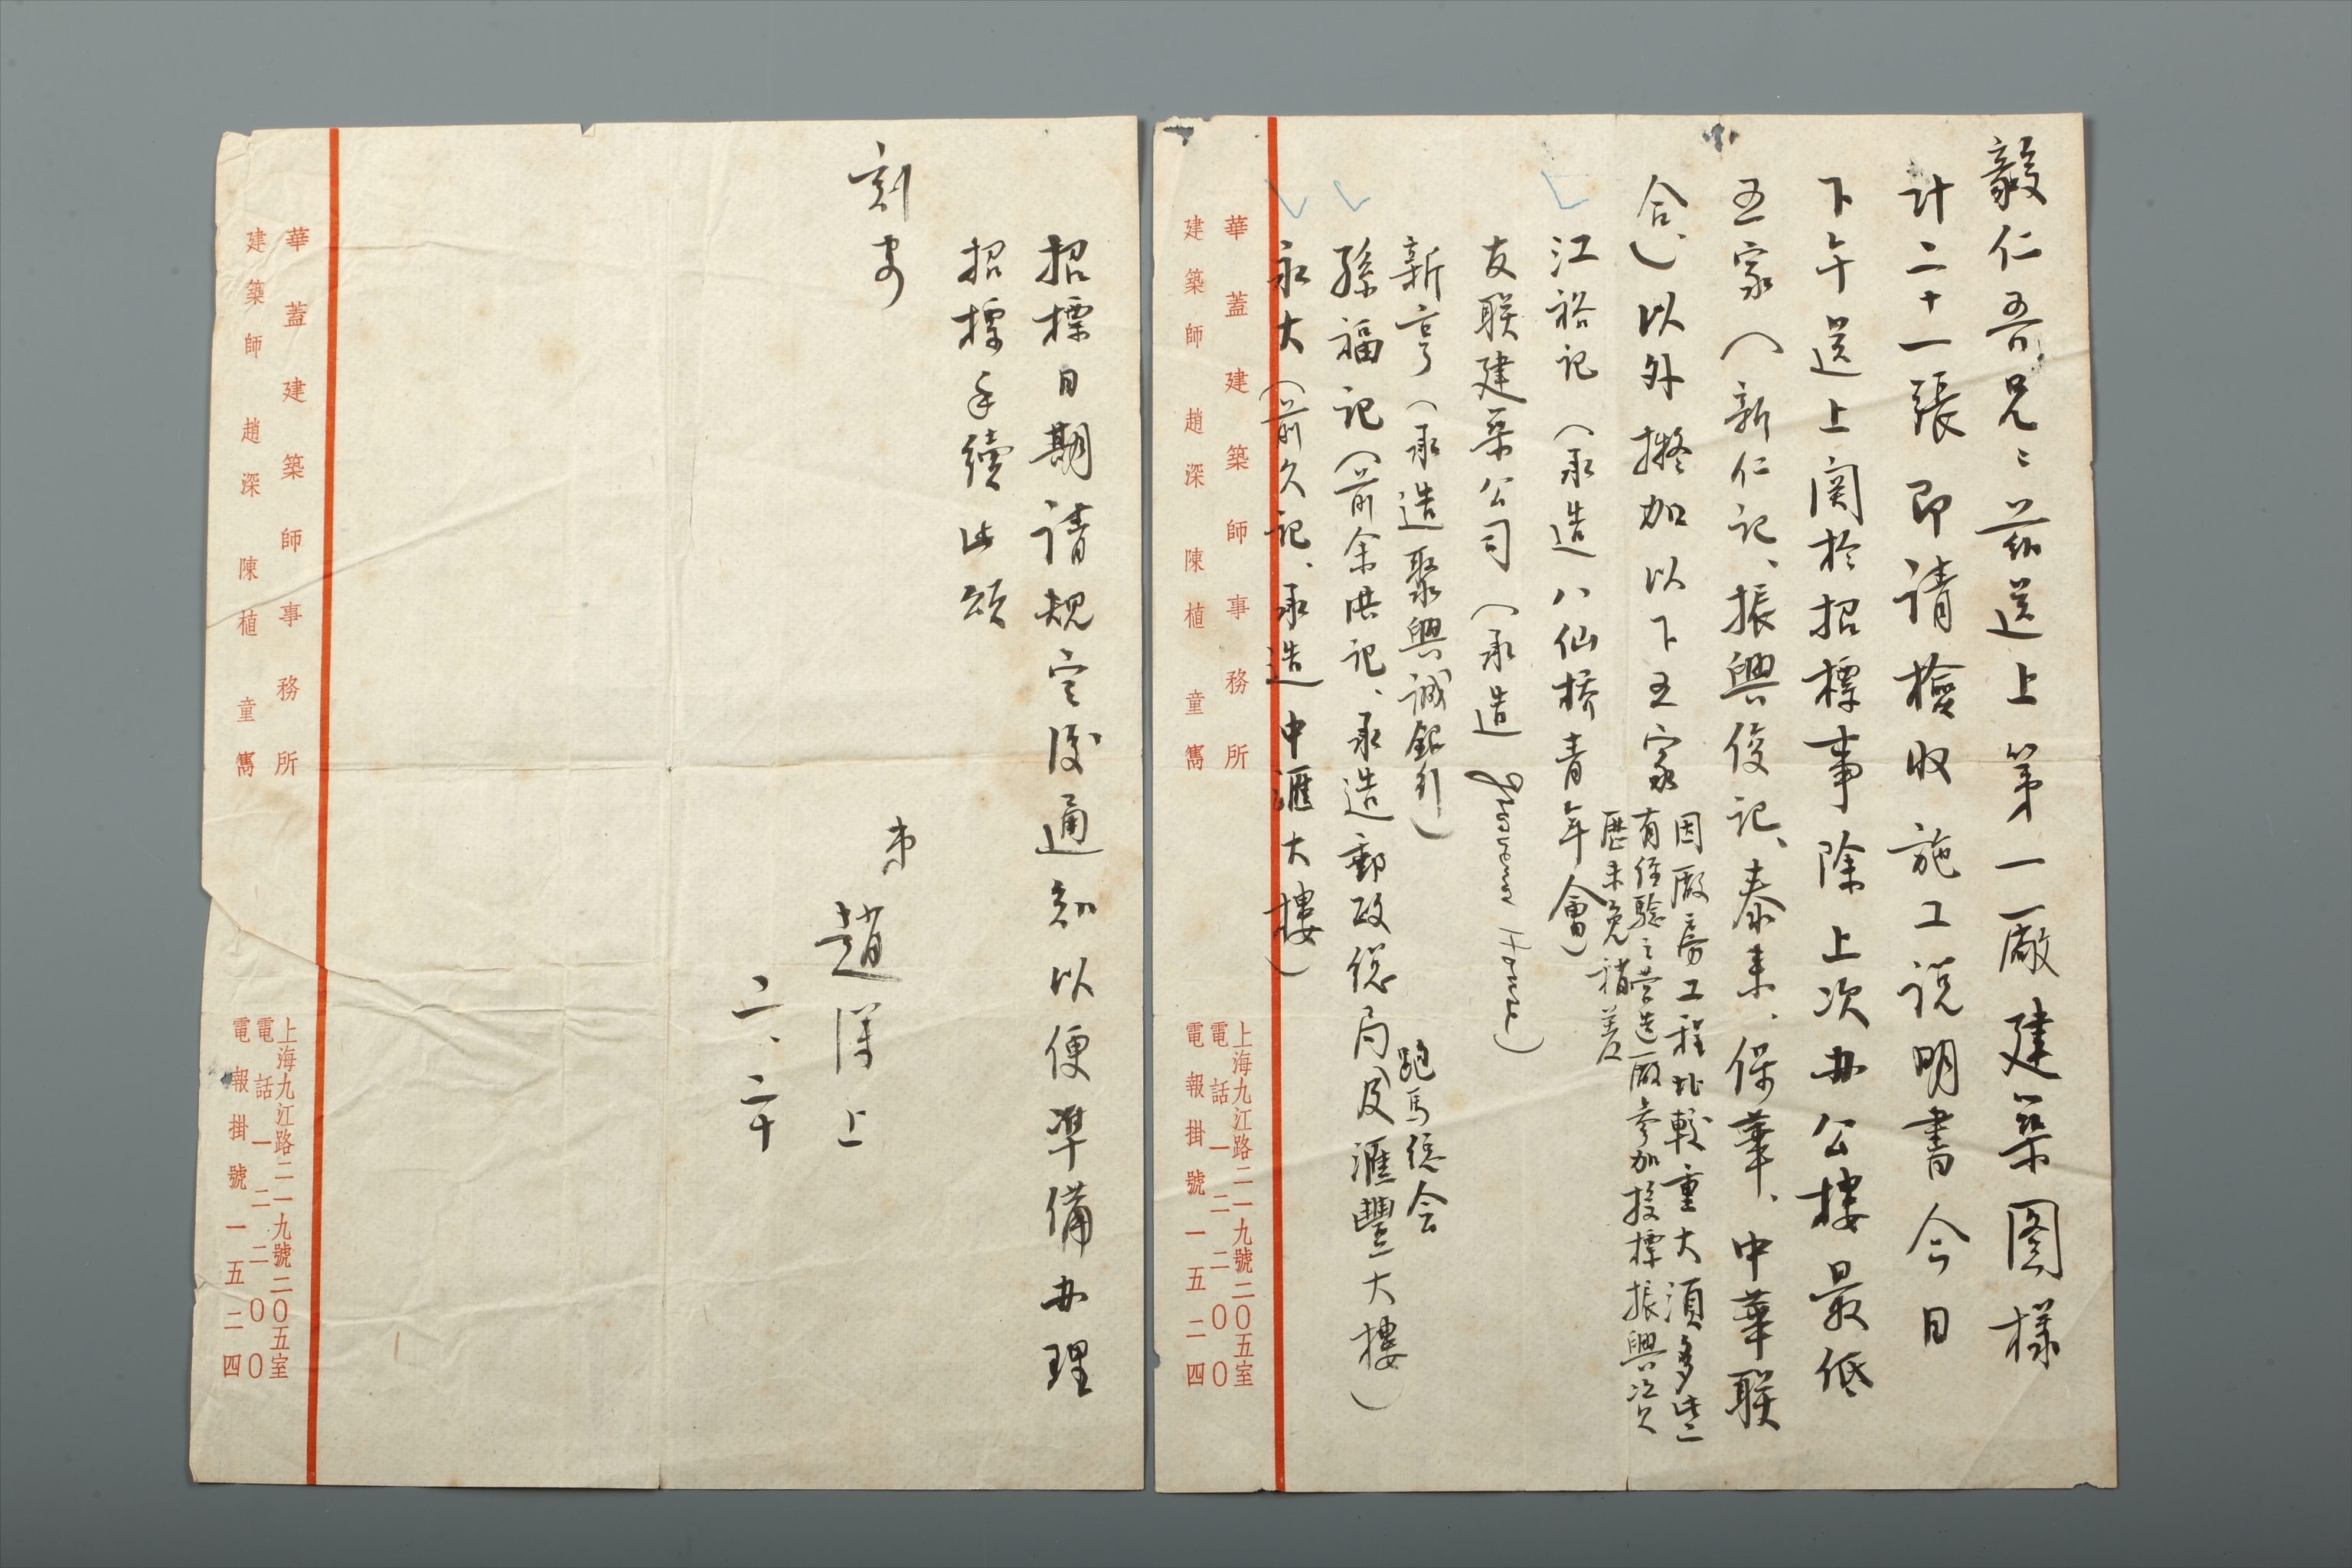 毅仁吾兄：茲送上第一廠建築图樣
计二十一張即请檢收施工説明書今日
下午送上関於招標事除上次办公樓最低
五家（新仁记、振興俊记、泰来、保華、中華联
合、）以外擬加以下五家
因廠房工程比較重大須多些
有經驗之营造廠參加投標振興资
歷未免稍差
江裕记（承造八仙橋青年會）
友联建築公司（承造
新亨（承造聚興誠銀行）
孫福记（前余洪记、承造郵政總局及滙豐大樓）
跑馬總会
永大（前久记、承造中滙大樓）
華蓋建築師事務所
建築師 趙深 陳植 童寯
上海九江路二一九號二〇五室
電話一二二〇〇
電報掛號一五二四
招標日期请规定後通知以便準備办理
招標手續此頌
刻安
弟
趙深上
二、二十
華蓋建築師事務所
建築師 趙深 陳植 童寯
上海九江路二一九號二〇五室
電話一二二〇〇
電報掛號一五二四